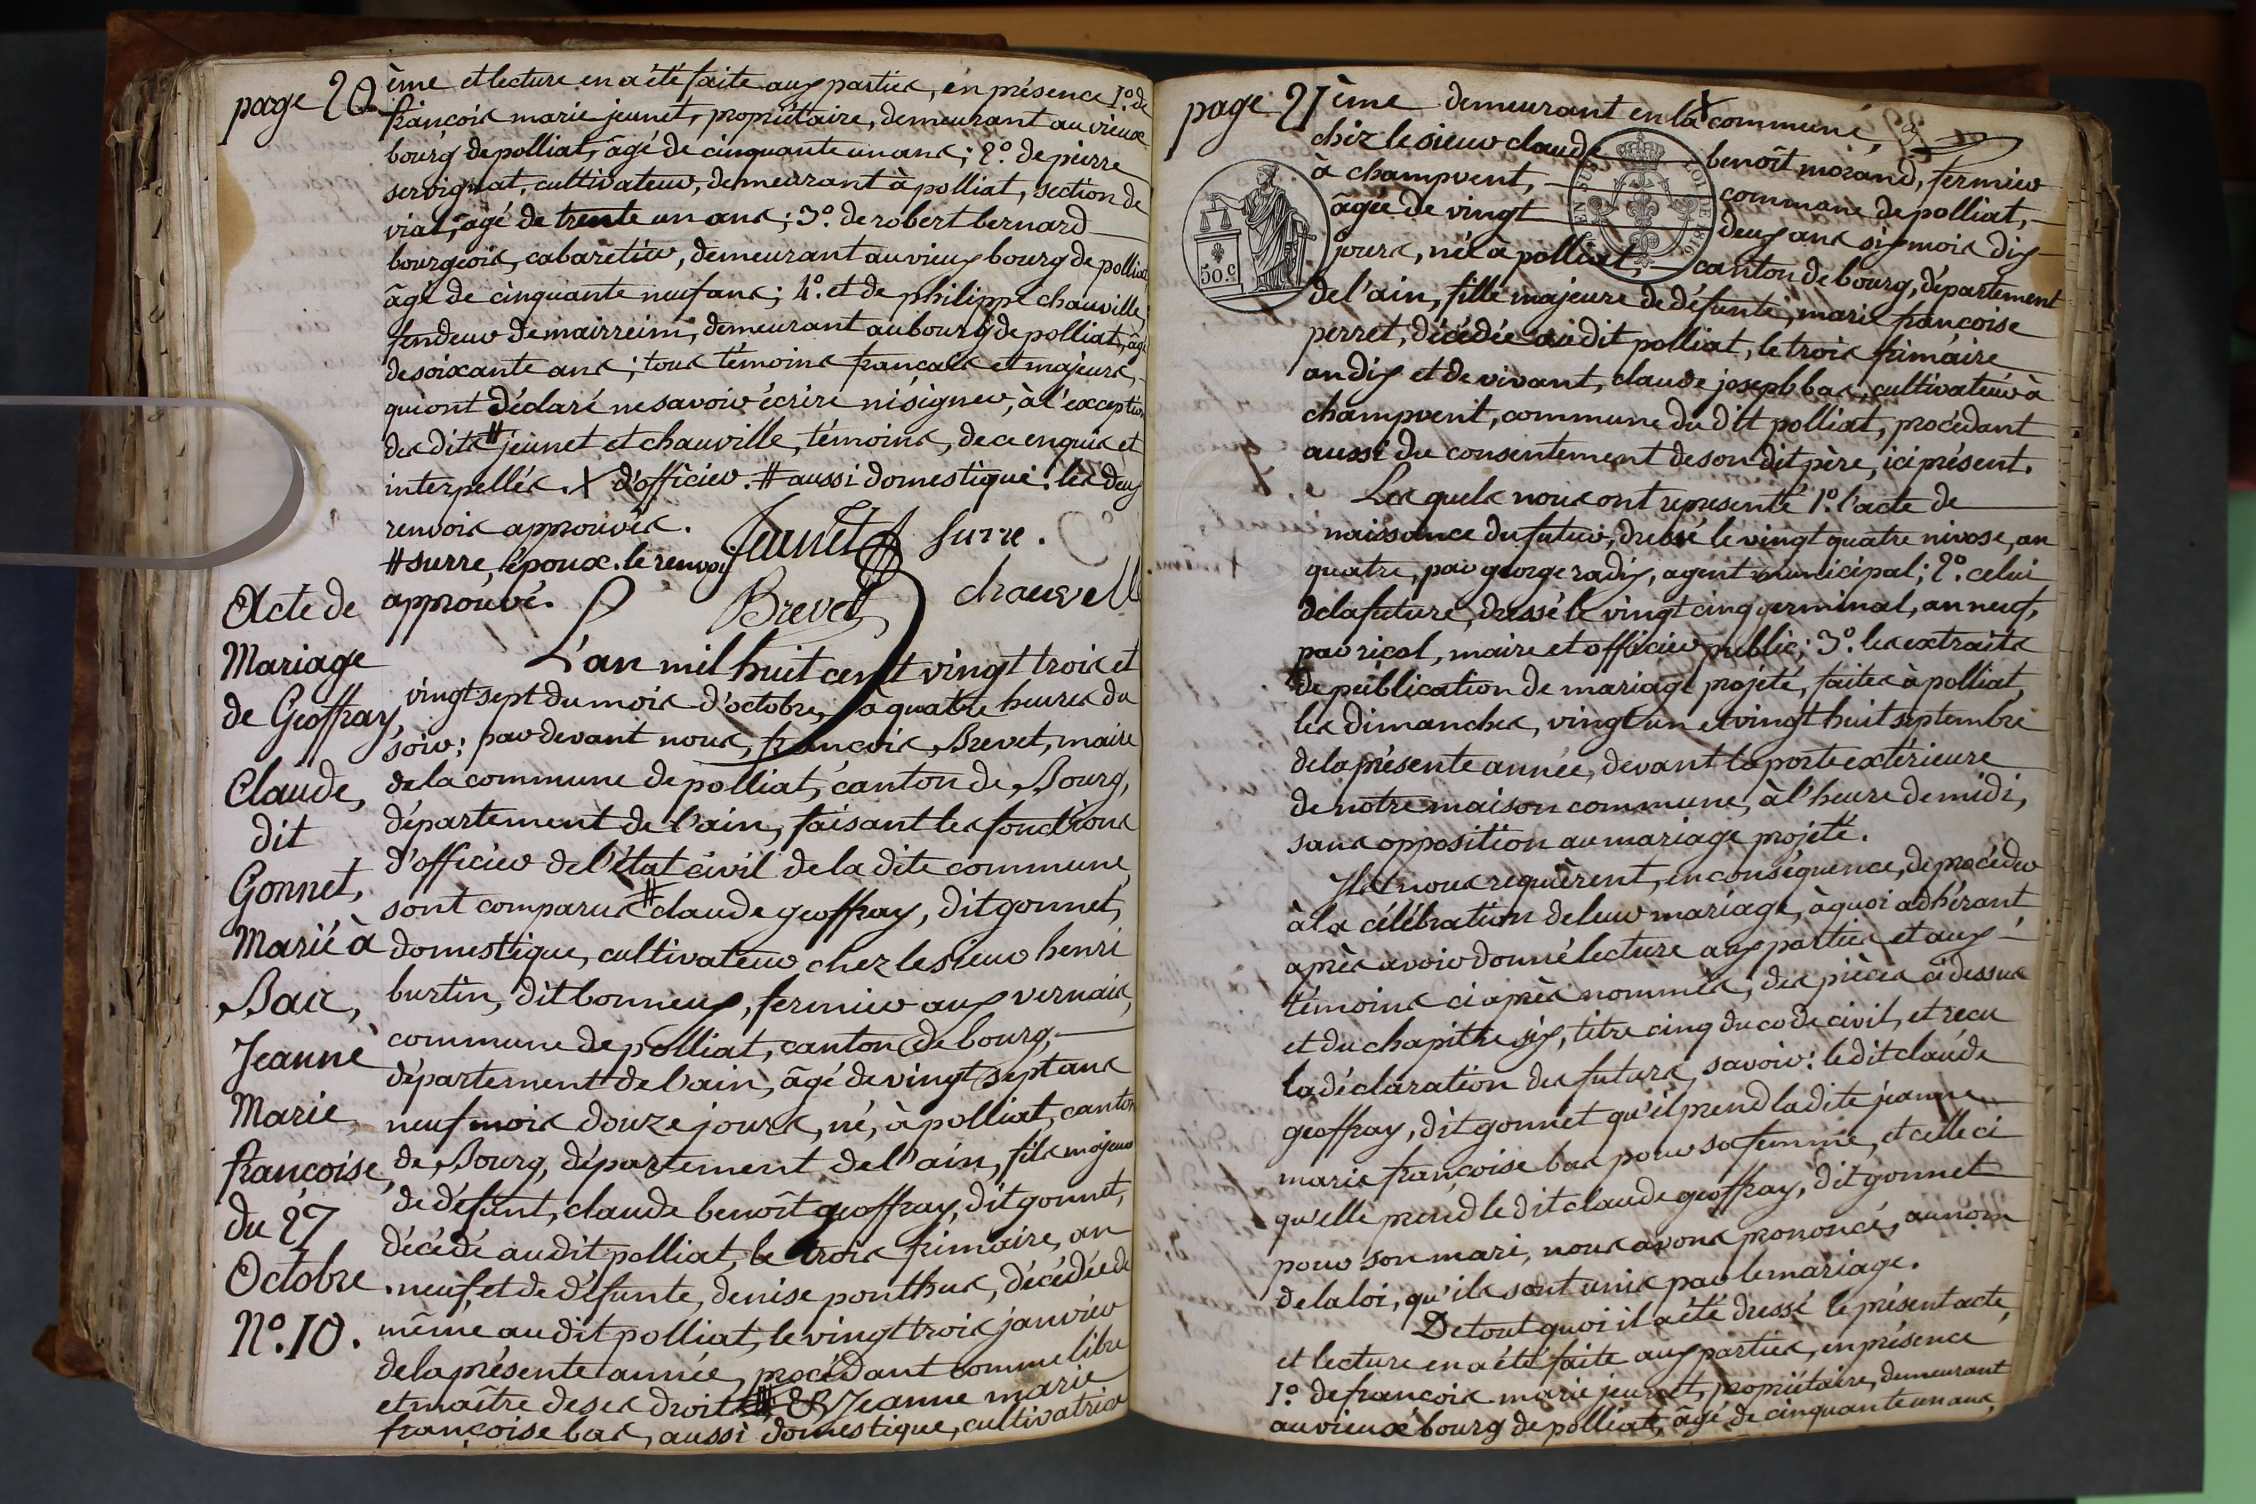 page 20 ème et lecture en a été faite aux parties, en présence 1.° de
françois marie jeunet, propriétaire, demeurant au vieux
bourg de polliat, âgé de cinquante un ans; 2.° de pierre
servignat, cultivateur, demeurant à polliat, section de
vial, âgé de trente un ans; 3.° de robert bernard
bourgeois, cabaretier, demeurant au vieux bourg de polliat
âgé de cinquante neuf ans; 4.° et de philippe chauville,
fendeur de mairreim, demeurant au bourg de polliat, âgé
de soixante ans; tous témoins francais et majeurs,
qui ont déclaré ne savoir écrire ni signer, à l'exception
des dits # jeunet et chauville, témoins, de ce enquis et
interpellés. X d'officier. # aussi domestique. les deux
renvois approuvés.
# surre, époux. le renvoi
approuvé.
Jeunet surre.
Brevet chauvell
Acte de
Mariage
de Geoffray,
Claude,
dit
Gonnet,
Marié à
Bas,
Jeanne
Marie
françoise,
du 27
Octobre
N.° 10.
L'an mil huit cent vingt trois et
vingt sept du mois d'octobre, à quatre heures du
soir; par devant nous, françois Brevet, maire
de la commune de polliat, canton de Bourg,
département de l'ain, faisant les fonctions
d'officier de l'état civil de la dite commune,
sont comparus # claude geoffray, dit gonnet,
domestique, cultivateur chez le sieur henri
burtin, dit bonneux, fermier aux vernais,
commune de polliat, canton de bourg,
département de l'ain, âgé de vingt sept ans
neuf mois douze jours, né, à polliat, canton
de Bourg, département de l'ain, fils majeur
de défunt, claude benoît geoffray, dit gonnet,
décédé audit polliat, le trois frimaire, an
neuf, et de défunte, denise ponthus, décédée de
même audit polliat, le vingt trois janvier
de la présente année, procédant comme libre
et maître de ses droits, & Jeanne marie
françoise bas, aussi domestique, cultivatrice
page 21 ème demeurant en la X commune,
chez le sieur claude benoît morand, fermier
à champvent, commune de polliat,
âgée de vingt deux ans six mois dix
jours, née à polliat, canton de bourg, département
50.c
EN SUS LOI DE 1816
de l'ain, fille majeure de défunte, marie françoise
perret, décédée audit polliat, le trois frimaire
an dix et de vivant, claude joseph bas, cultivateur à
champvent, commune du dit polliat, procédant
aussi du consentement de son dit père, ici présent.
Les quels nous ont représenté 1.° l'acte de
naissance du futur, dressé le vingt quatre nivose, an
quatre, par george radix, agent municipal; 2.° celui
de la future, dressé le vingt cinq germinal, an neuf,
par ricol, maire et officier public; 3.° les extraits
de publication de mariage projeté, faites à polliat,
les dimanches, vingt un et vingt huit septembre
de la présente année, devant la porte extérieure
de notre maison commune, à l'heure de midi,
sans opposition au mariage projeté.
Ils nous requièrent, en conséquence, de procéder
à la célébration de leur mariage, à quoi adhérant,
après avoir donné lecture aux parties et aux
témoins ci après nommés, des pièces ci dessus
et du chapitre six, titre cinq du code civil, et recu
la déclaration des futurs, savoir: le dit claude
geoffray, dit gonnet qu'il prend la dite jeanne
marie françoise bas pour sa femme, et celle ci
qu'elle prend le dit claude geoffray, dit gonnet
pour son mari, nous avons prononcé, au nom
de la loi, qu'ils sont unis par le mariage.
De tout quoi il a été dressé le présent acte,
et lecture en a été faite aux parties, en présence
1.° de françois marie jeunet, propriétaire, demeurant
au vieux bourg de polliat, âgé de cinquante un ans,